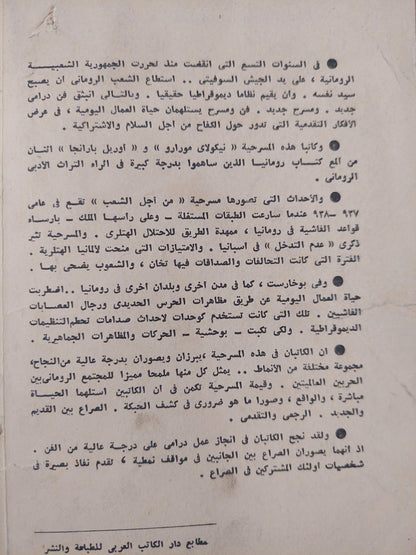 ● فى السنوات التسع التى انقضت منذ تحررت الجمهورية الشعبية
الرومانية ، على يد الجيش السوفيتى .. استطاع الشعب الرومانى ان يصبح
سيد نفسه . وان يقيم نظاما ديموقراطيا حقيقيا . وبالتالى انبثق فن درامى
جديد . ومسرح جديد . فن ومسرح يستلهمان حياة العمال اليومية ، فى عرض
الأفكار التقدمية التى تدور حول الكفاح من اجل السلام والاشتراكية .
● وكاتبا هذه المسرحية « نيكولاى مورارو » و « اوريل بارانجا » اثنان
من ألمع كتاب رومانيا الذين ساهموا بدرجة كبيرة فى اثراء التراث الأدبى
الرومانى .
● والأحداث التى تصورها مسرحية « من اجل الشعب » تقع فى عامى
٩٣٧ ــ ٩٣٨ عندما سارعت الطبقات المستغلة ــ وعلى راسها الملك ــ بارساء
قواعد الفاشية فى رومانيا ، ممهدة الطريق للاحتلال الهتلرى . والمسرحية تثير
ذكرى « عدم التدخل » فى اسبانيا . والامتيازات التى منحت لالمانيا الهتلرية .
الفترة التى كانت التحالفات والصداقات فيها تخان ، والشعوب يضحى بها .
● وفى بوخارست ، كما فى مدن اخرى وبلدان اخرى فى رومانيا .. اضطربت
حياة العمال اليومية عن طريق مظاهرات الحرس الحديدى ورجال العصابات
الفاشيين . تلك التى كانت تستخدم كوحدات لاحداث صدامات تحطم التنظيمات
الديموقراطية . ولكى تكبت ــ بوحشية ــ الحركات والمظاهرات الجماهيرية .
● ان الكاتبان فى هذه المسرحية ، يبرزان ويصوران بدرجة عالية من النجاح ،
مجموعة مختلفة من الأنماط .. يمثل كل منها ملمحا مميزا للمجتمع الرومانى بين
الحربين العالميتين . وقيمة المسرحية تكمن فى ان الكاتبين استلهما الحياة
مباشرة ، والواقع ، وصورا ما هو ضرورى فى كشف الحبكة . الصراع بين القديم
والجديد . الرجعى والتقدمى .
● ولقد نجح الكاتبان فى انجاز عمل درامى على درجة عالية من الفن .
اذ انهما يصوران الصراع بين الجانبين فى مواقف نمطية ، تقدم نفاذ بصيرة فى
شخصيات اولئك المشتركين فى الصراع .
مطابع دار الكاتب العربى للطباعة والنشر